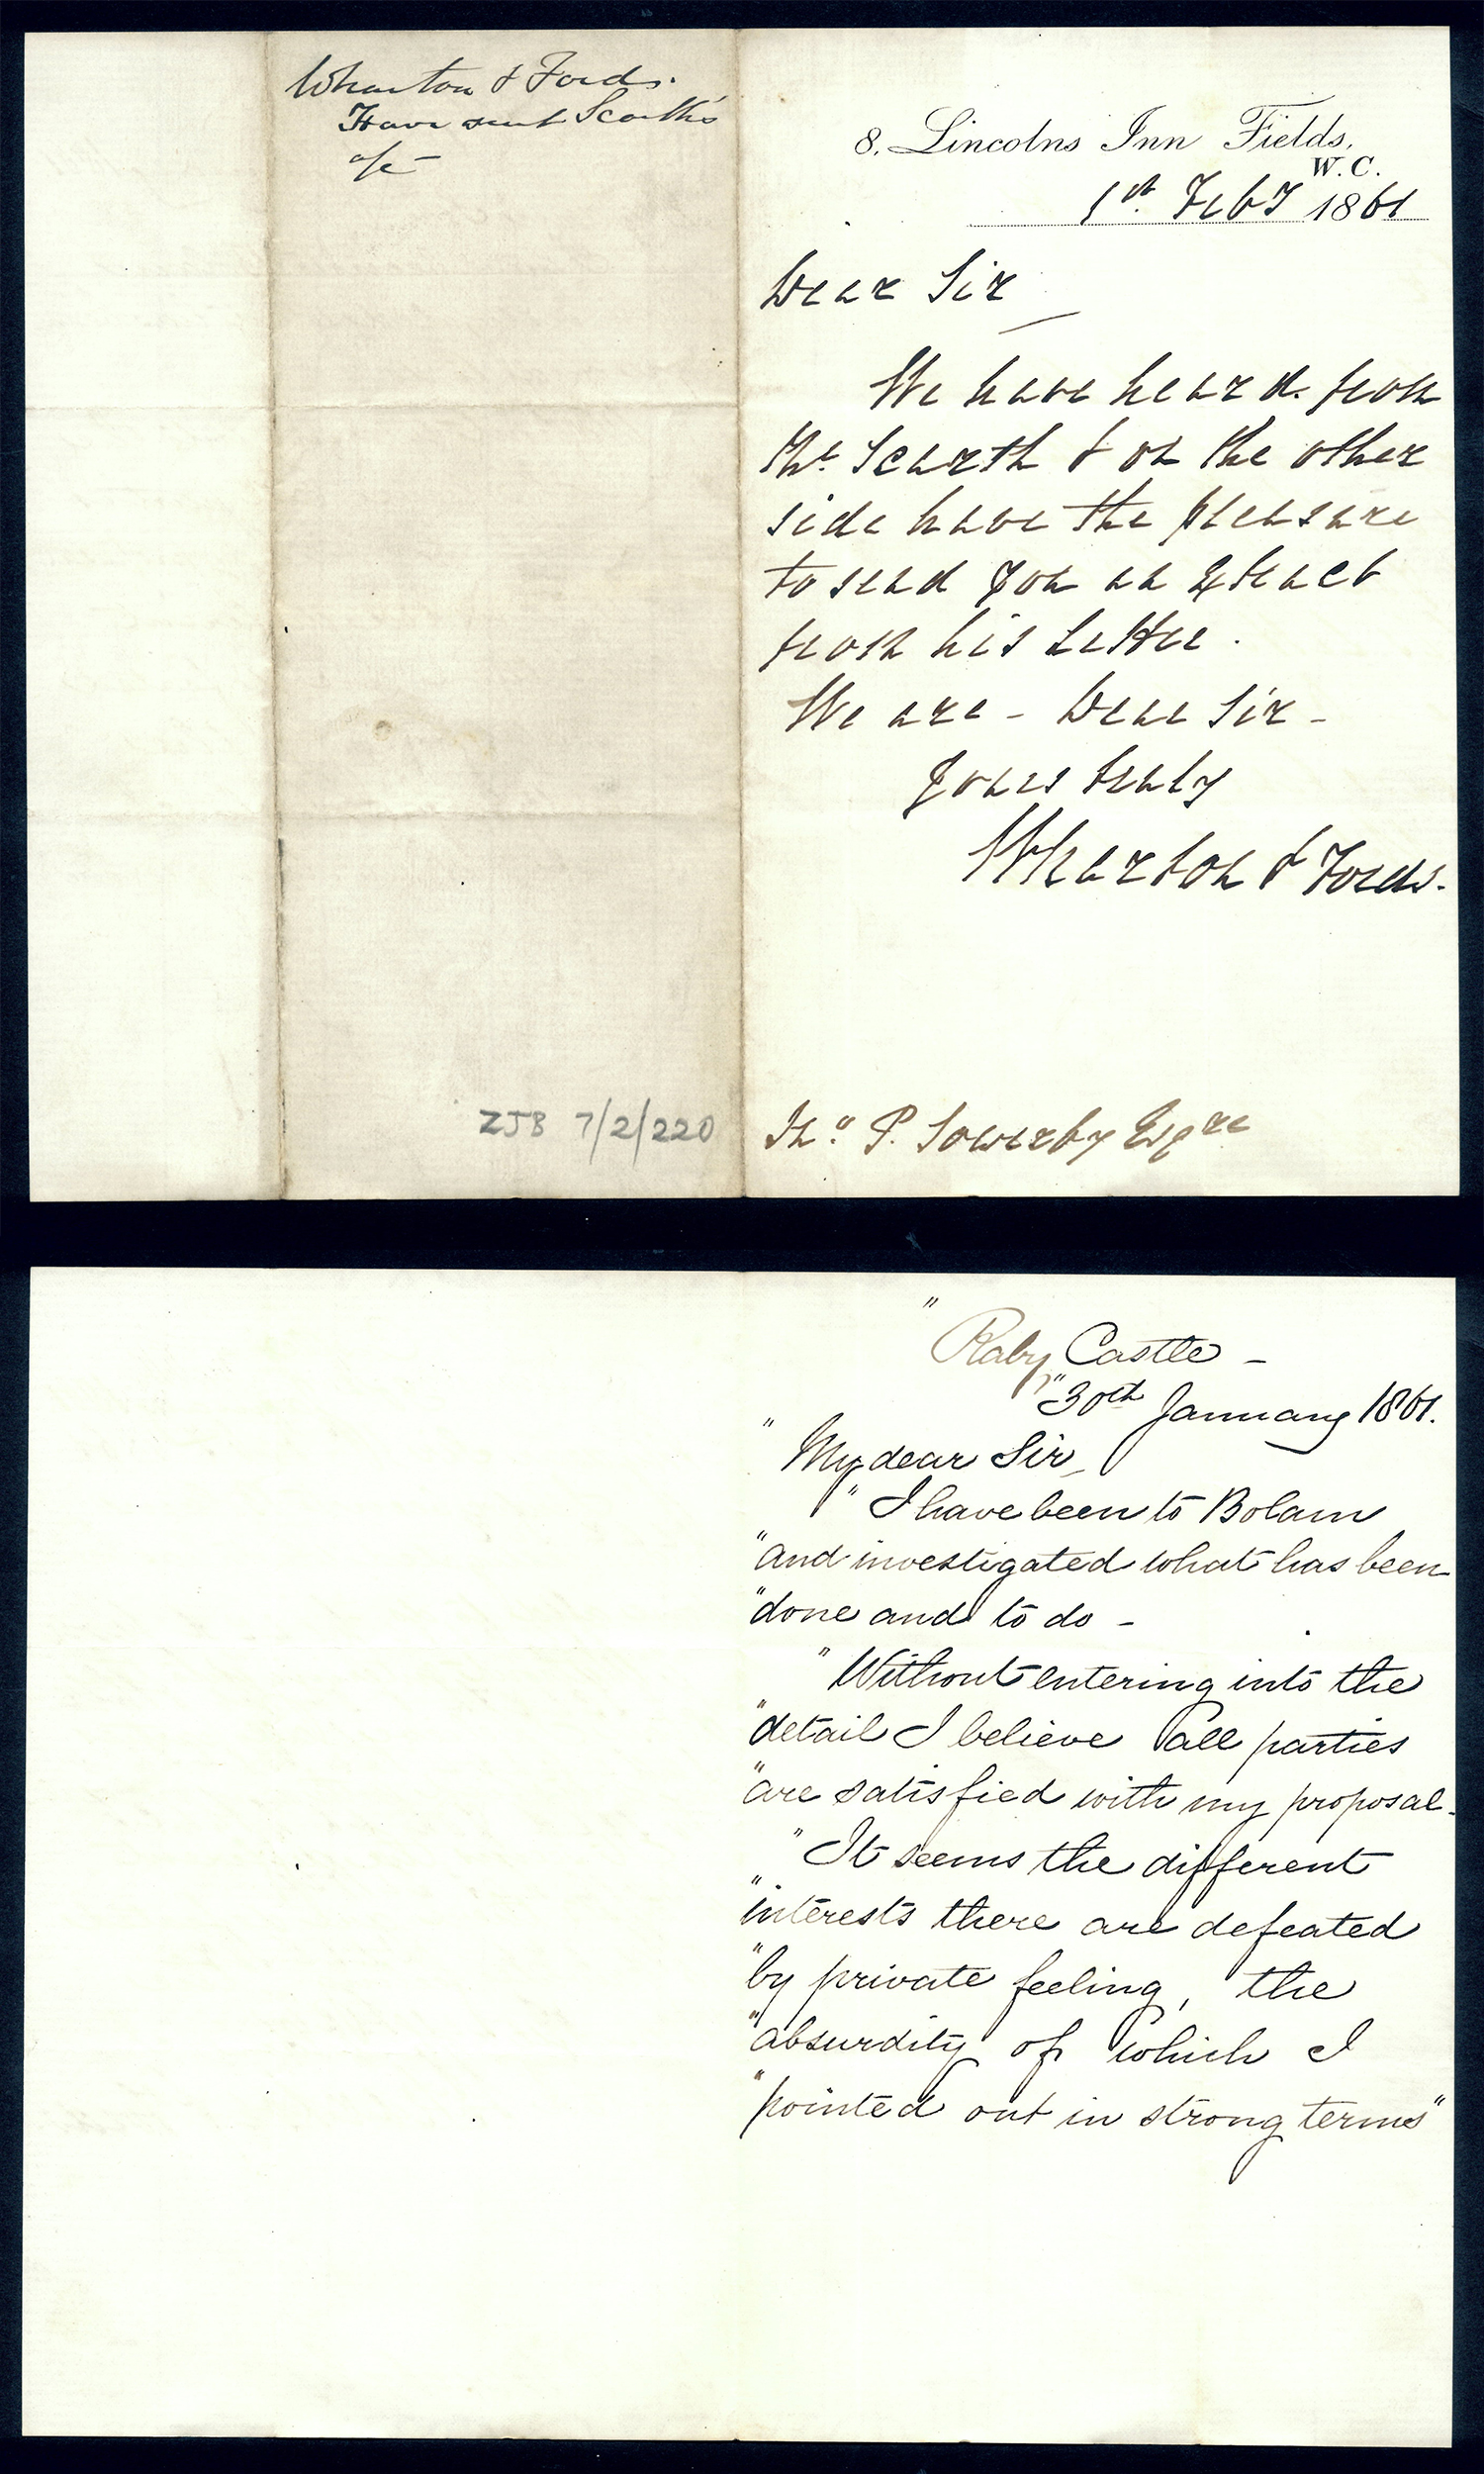 Wharton & Fords.
Have sent Scarth's
a/c
ZJB 7/2/220
8. Lincolns Inn Fields,
W.C.
1st. Feby 1861
Dear Sir
We have heard from
Mr. Scarth & on the other
side have the pleasure
to send you an Extract
from his Letter.
We are - Dear Sir -
Yours truly
Wharton & Fords.
Thos. P. Sowerby Esqre
"Raby Castle -
"30th January 1861.
"My dear Sir,
"I have been to Bolam
"and investigated what has been
"done and to do -
"Without entering into the
"detail I believe all parties
"are satisfied with my proposal.
"It seems the different
"interests there are defeated
"by private feeling, the
"absurdity of which I
"pointed out in strong terms"